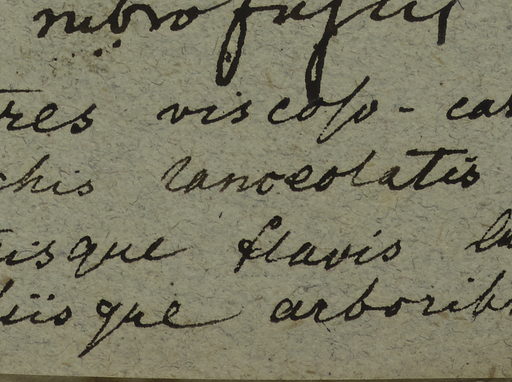 rubro fuscis
tres viscoso - cas
chis lanceolatis
isque flavis lu
siisque arborib